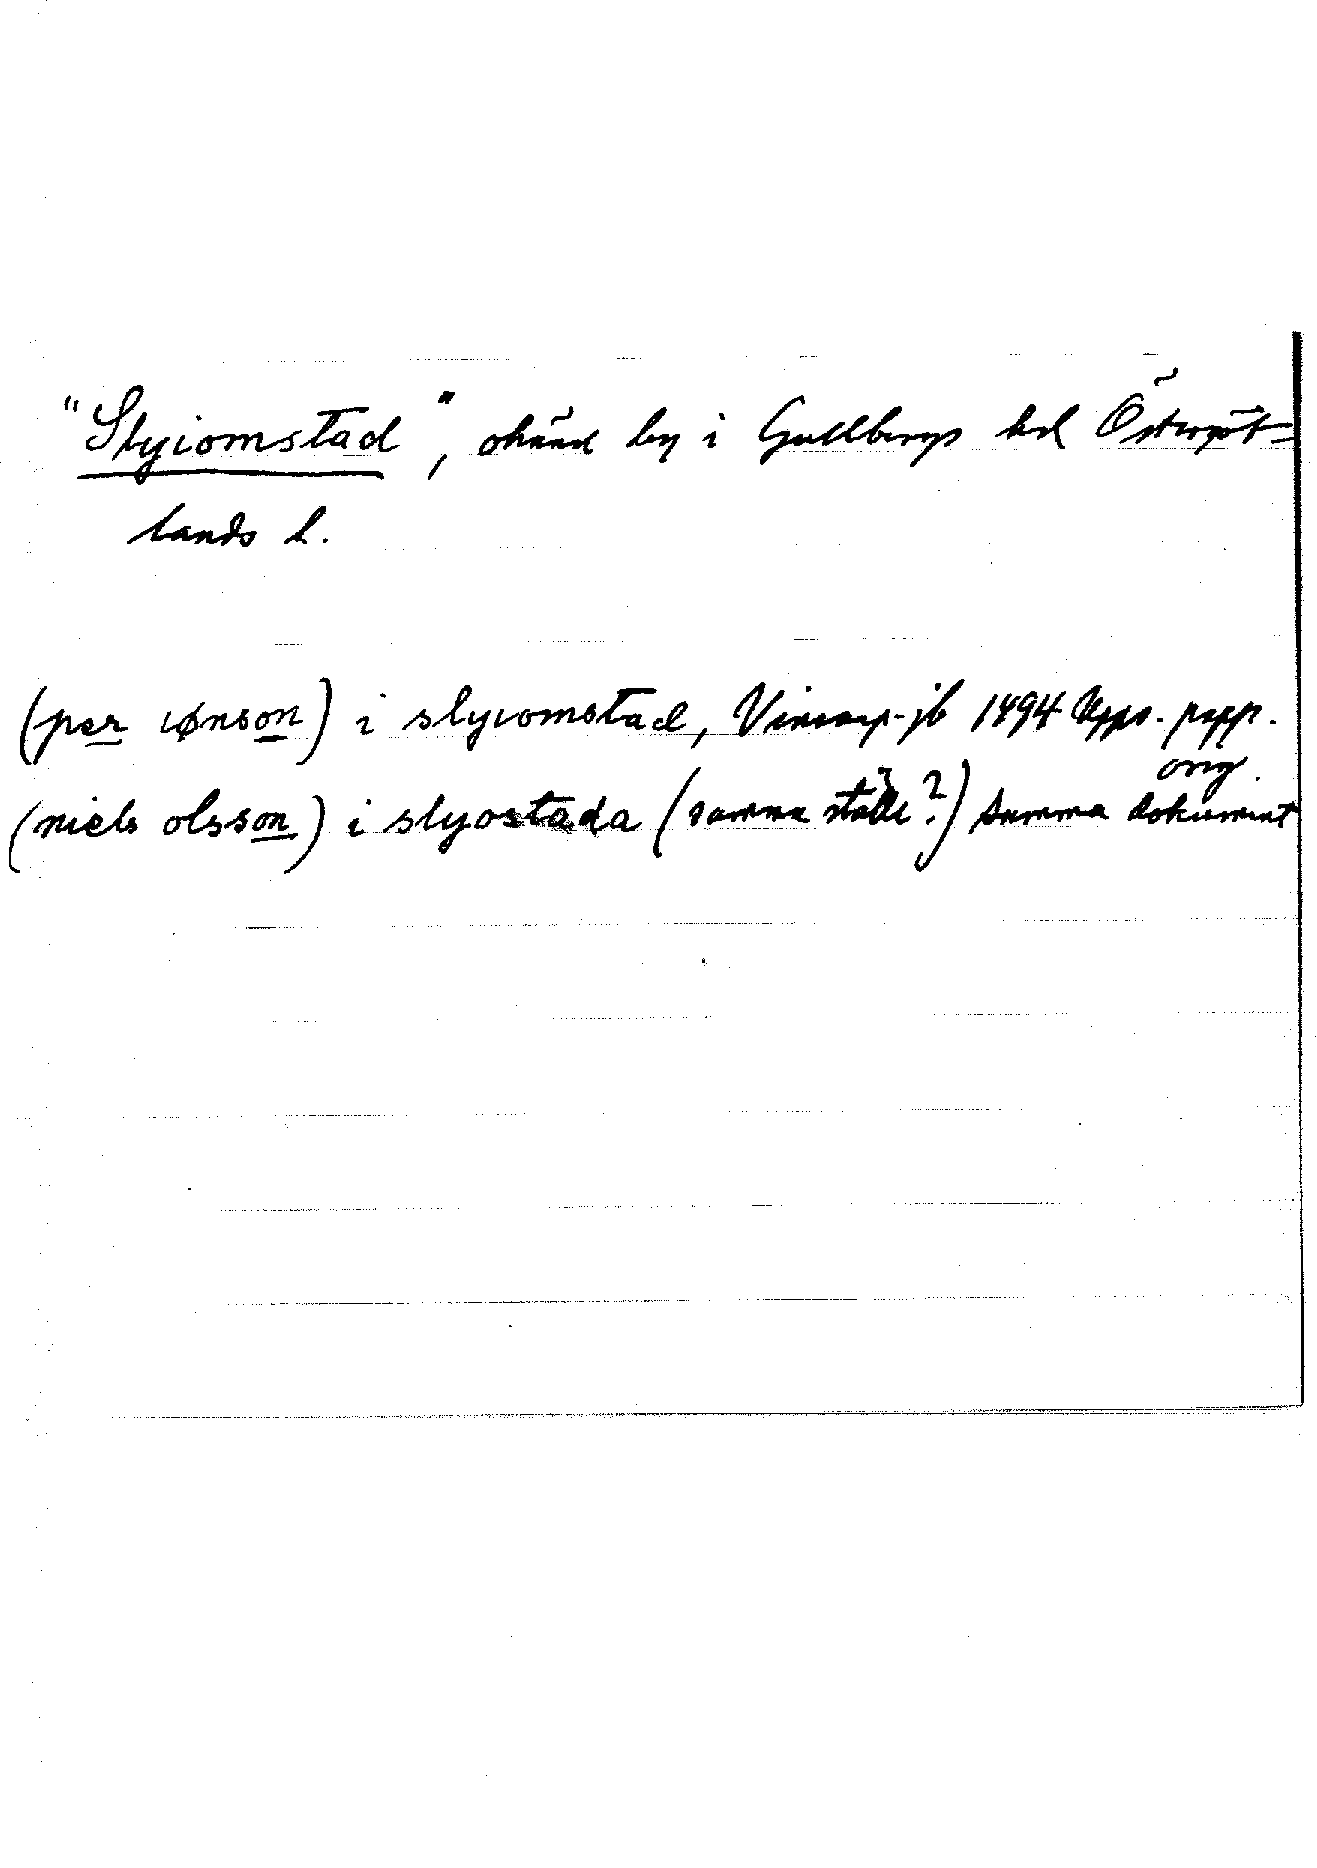 "Slyiomstad", okänd by i Gullbergs hd Östergöt=
lands l.
(per iønson) i slyiomstad, Vinarp-jb 1494 Upps. papp.
orig.
(niels olsson) i slyostada (samma ställe?) samma dokument